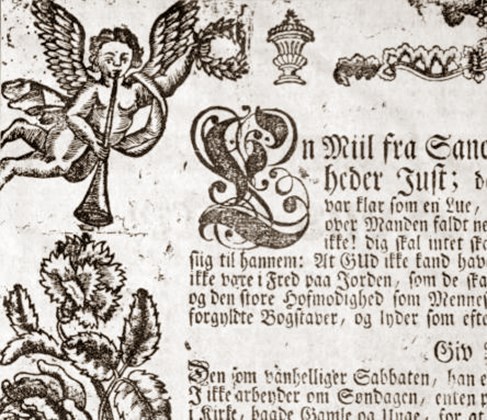 En Miil fra Sand
heder Just; d
var klar som en Lue,
over Manden faldt ne
ikke! dig skal intet sk
siig til hannem: At GUd ikke kand hav
ikke være i Fred paa Jorden, som de ska
og den store Hofmodighed som Mennes
forgyldte Bogstaver, og lyder som efte
Giv
Den som vanhelliger Sabbaten, han e
I ikke arbeyder om Søndagen, enten p
i Kirke, baade Gamle og Unge, for